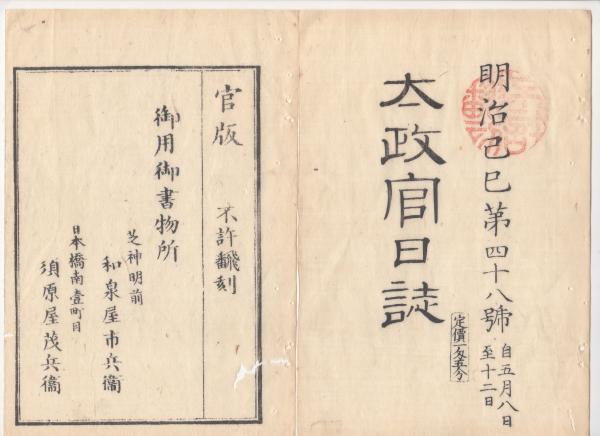 明治己巳第四十八號
自五月八日
至十二日
太政官日誌
官版 不許飜刻
御用御書物所
芝神明前
和泉屋市兵衞
日本橋南壹町目
須原屋茂兵衞